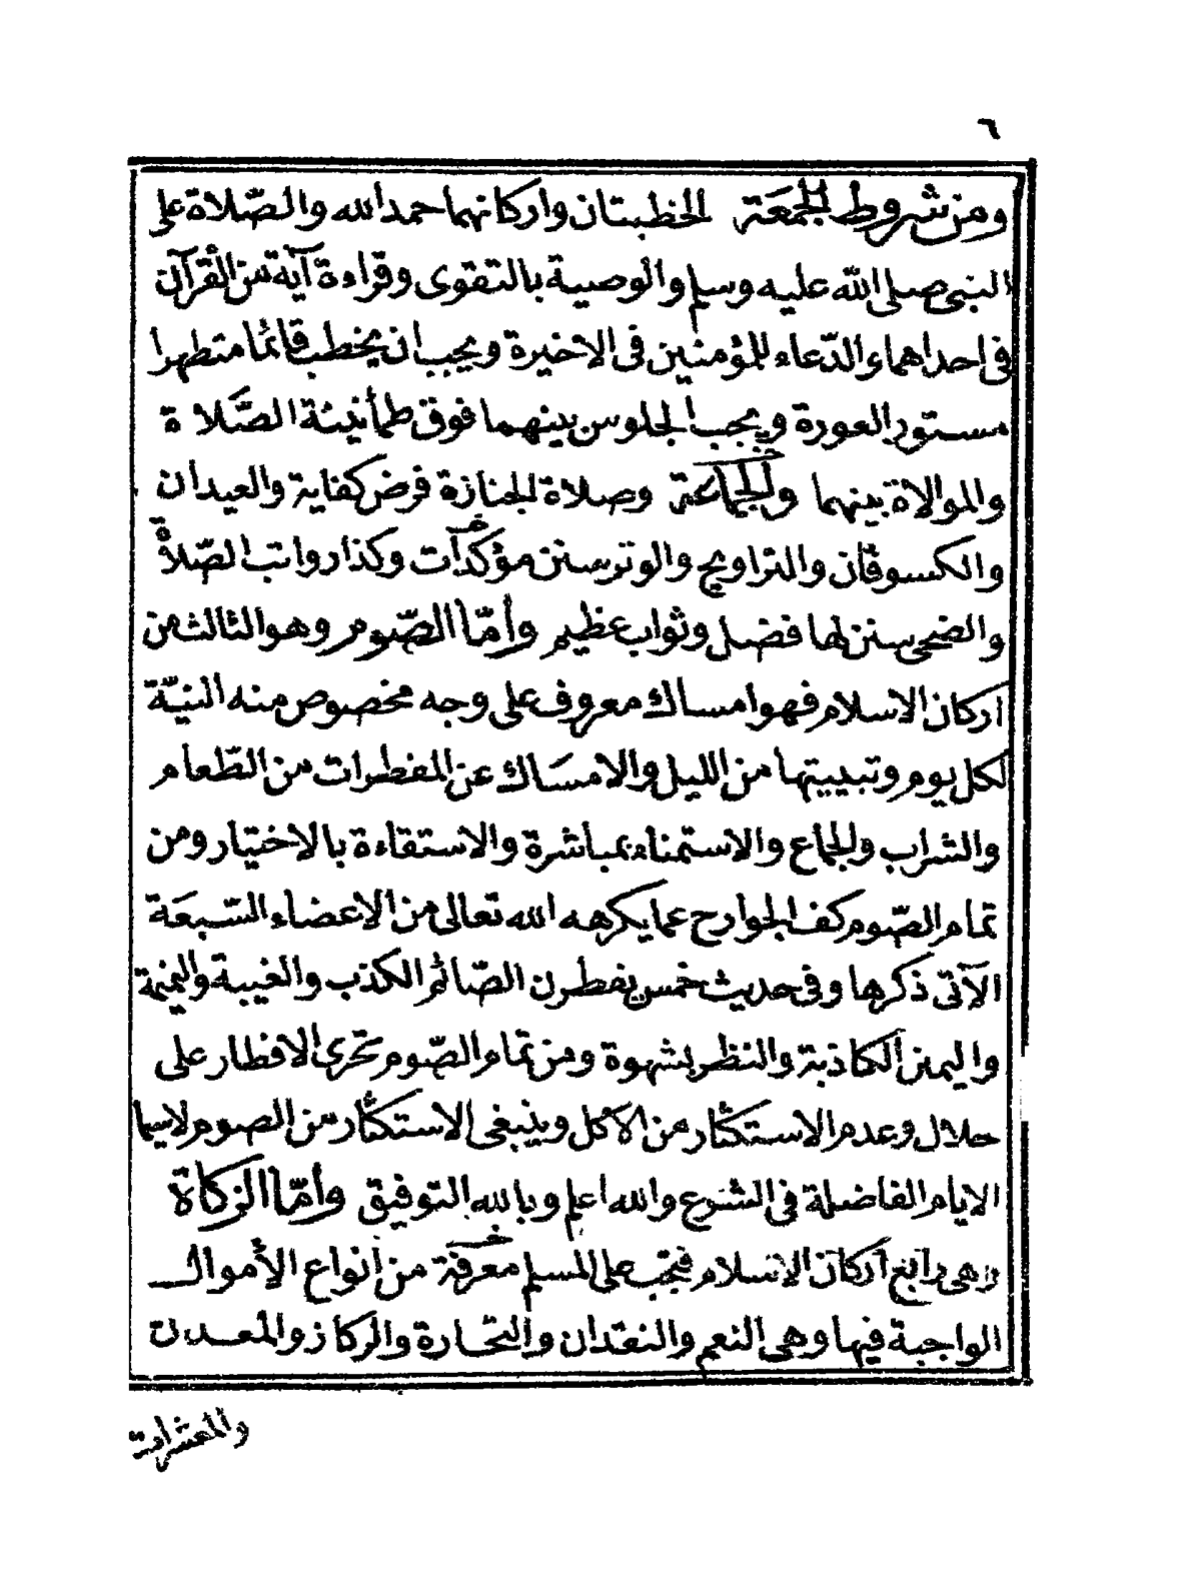 ٦
ومن شروط الجمعة الخطبتان واركانهما حمد الله والصّلاة على
النبي صلى الله عليه وسلم والوصية بالتقوى وقراءة آية من القرآن
فى احداهما والدّعاء للمؤمنين فى الاخيرة ويجب ان يخطب قائما متطهرا
مستور العورة ويجب الجلوس بينهما فوق طمأنينة الصّلاة
والموالاة بينهما والجماعة وصلاة الجنازة فرض كفاية والعيدان
والكسوفان والتراويح والوتر سنن مؤكدات وكذا رواتب الصّلاة
والضحى سنن لها فضل وثواب عظيم وأمّا الصّوم وهو الثالث من
اركان الاسلام فهو امساك معروف على وجه مخصوص منه النيّة
لكل يوم وتبييتها من الليل والامساك عن المفطرات من الطّعام
والشراب والجماع والاستمناء بمباشرة والاستقاءة بالاختيار ومن
تمام الصّوم كف الجوارح عما يكرهه الله تعالى من الاعضاء السّبعة
الآتى ذكرها وفى حديث خمس يفطرن الصّائم الكذب والغيبة والنميمة
واليمين الكاذبة والنظر بشهوة ومن تمام الصّوم تحرى الافطار على
حلال وعدم الاستكثار من الأكل وينبغى الاستكثار من الصوم لاسيما
الايام الفاضلة فى الشرع والله اعلم وبالله التوفيق وأمّا الزكاة
وهى رابع أركان الاسلام فيجب على المسلم معرفة من أنواع الأموال
الواجبة فيها وهى النعم والنقدان والتجارة والركاز والمعدن
والمعشرات